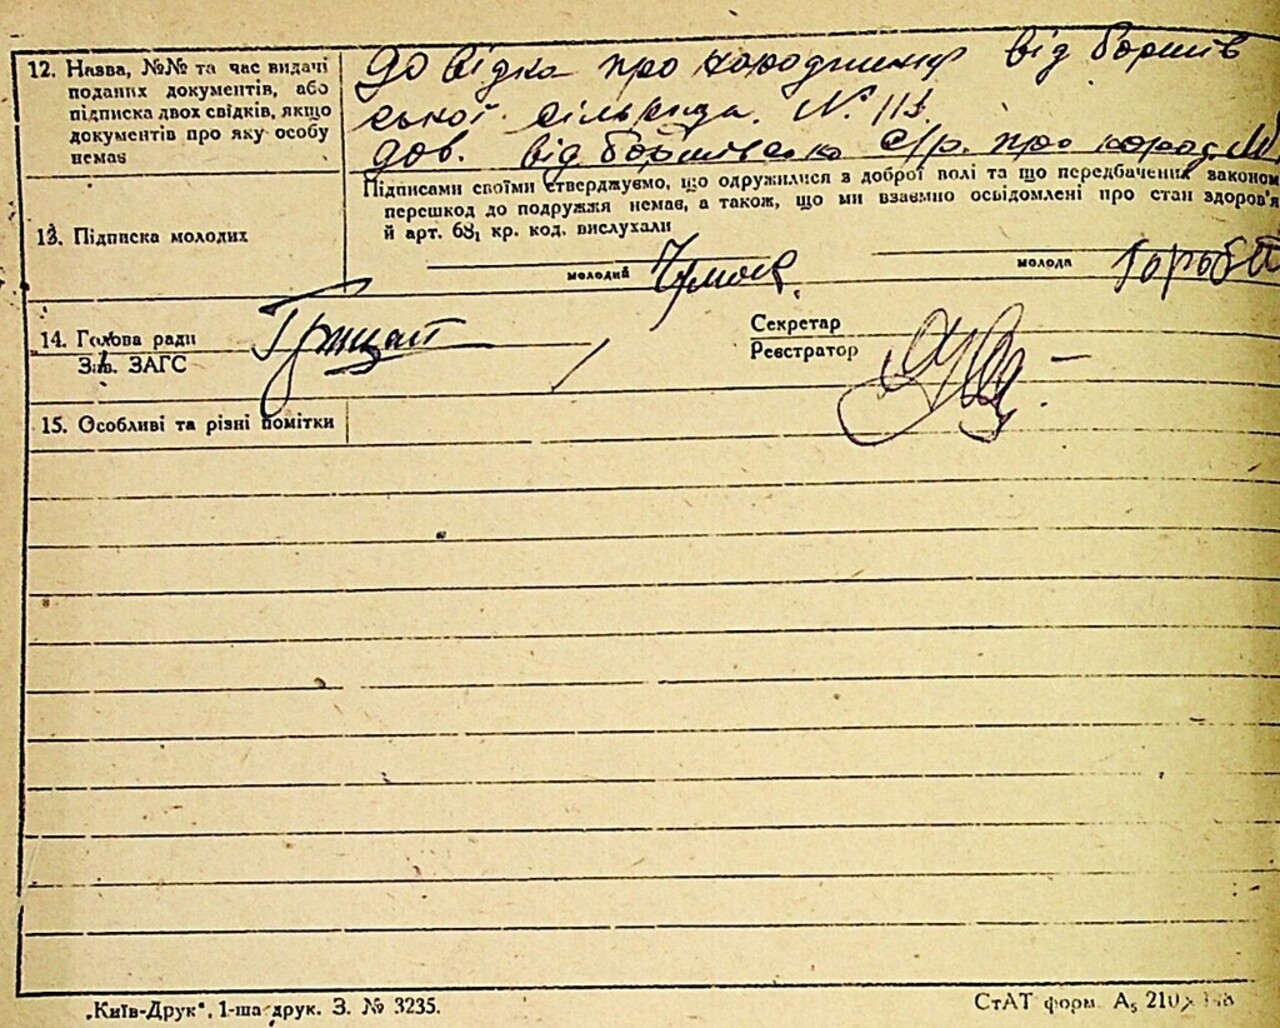 12. Назва, №№ та час видачі
поданих документів, або
підписка двох свідків, якщо
документів про яку особу
немає
Довідка про народження від Борщів
ської сільради. N. 113
дов. від Борщівсько с/р. про народ. М
Підписами своїми стверджуємо, що одружилися з доброї волі та що передбачених законом
перешкод до подружжя немає, а також, що ми взаємно освідомлені про стан здоров'я
й арт. 68₁ кр. код. вислухали
13. Підписка молодих
молодий
молода
14. Голова ради
Зав. ЗАГС
Грицай
Секретар
Реєстратор
15. Особливі та різні помітки
„Київ-Друк", 1-ша друк. З. № 3235.
СтАТ форм. А₅ 210×148